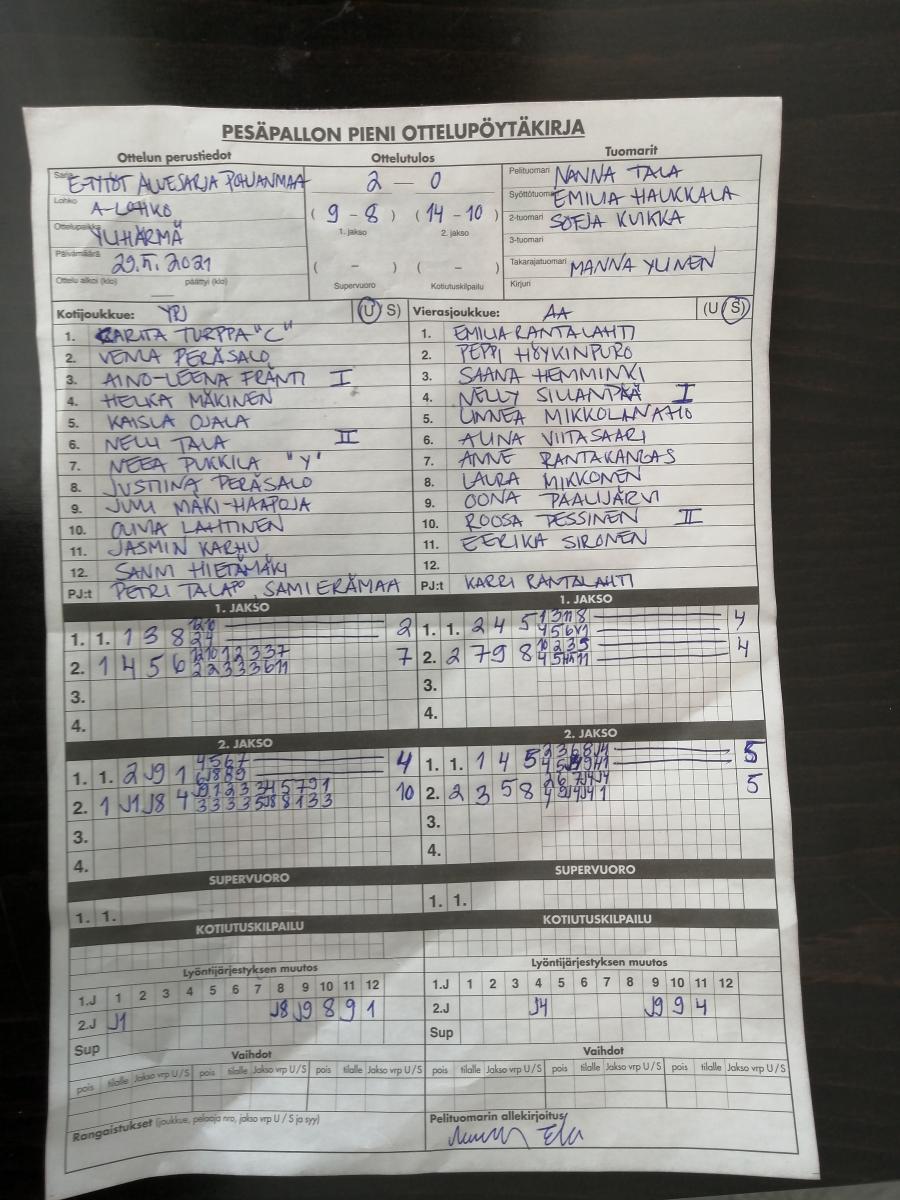 PESÄPALLON PIENI OTTELUPÖYTÄKIRJA
Ottelun perustiedot Ottelutulos Tuomarit
Sarja E-TYTÖT ALUESARJA POHJANMAA
Lohko A-LOHKO
Ottelupaikka YLIHÄRMÄ
Päivämäärä 29.5. 2021
Ottelu alkoi (klo) päättyi (klo)
2 — 0
( 9 - 8 ) ( 14 - 10 )
1. jakso 2. jakso
( – ) ( – )
Supervuoro Kotiutuskilpailu
Pelituomari NANNA TALA
Syöttötuomari EMILIA HAUKKALA
2-tuomari SOFJA KUIKKA
3-tuomari
Takarajatuomari MANNA YLINEN
Kirjuri
Kotijoukkue: YPJ (U S)
1. KARITA TURPPA "C"
2. VENLA PERÄSALO
3. AINO-LEENA FRÄNTI I
4. HELKA MÄKINEN
5. KAISLA OJALA
6. NELLI TALA II
7. NEEA PUKKILA "Y"
8. JUSTIINA PERÄSALO
9. JULI MÄKI-HAAPOJA
10. OLIVIA LAHTINEN
11. JASMIN KARHU
12. SANNI HIETAMÄKI
PJ:t PETRI TALA PD, SAMI ERÄMAA
Vierasjoukkue: AA (U S)
1. EMILIA RANTALAHTI
2. PEPPI HÖYKINPURO
3. SAANA HEMMINKI
4. NELLY SILLANPÄÄ I
5. LINNEA MIKKOLANAHO
6. ALINA VIITASAARI
7. ANNE RANTAKANGAS
8. LAURA MIKKONEN
9. OONA PAALIJÄRVI
10. ROOSA PESSINEN II
11. EERIKA SIRONEN
12.
PJ:t KARRI RANTALAHTI
1. JAKSO 1. JAKSO
1. 1. 1 3 8 2
2. 1 4 5 6 7
3.
4.
1. 1. 2 4 5 4
2. 2 7 9 8 4
3.
4.
2. JAKSO 2. JAKSO
1. 1. 2 J9 1 4
2. 1 J1 J8 4 10
3.
4.
1. 1. 1 4 5 5
2. 2 3 5 8 5
3.
4.
SUPERVUORO SUPERVUORO
1. 1. 1. 1.
KOTIUTUSKILPAILU KOTIUTUSKILPAILU
Lyöntijärjestyksen muutos
1.J 1 2 3 4 5 6 7 8 9 10 11 12
2.J J1 J8 J9 8 9 1
Sup
Lyöntijärjestyksen muutos
1.J 1 2 3 4 5 6 7 8 9 10 11 12
2.J J4 J9 9 4
Sup
Vaihdot Vaihdot
pois tilalle Jakso vrp U/S pois tilalle Jakso vrp U/S pois tilalle Jakso vrp U/S
pois tilalle Jakso vrp U/S pois tilalle Jakso vrp U/S pois tilalle Jakso vrp U/S
Rangaistukset (joukkue, pelaaja nro, jakso vrp U / S ja syy)
Pelituomarin allekirjoitus